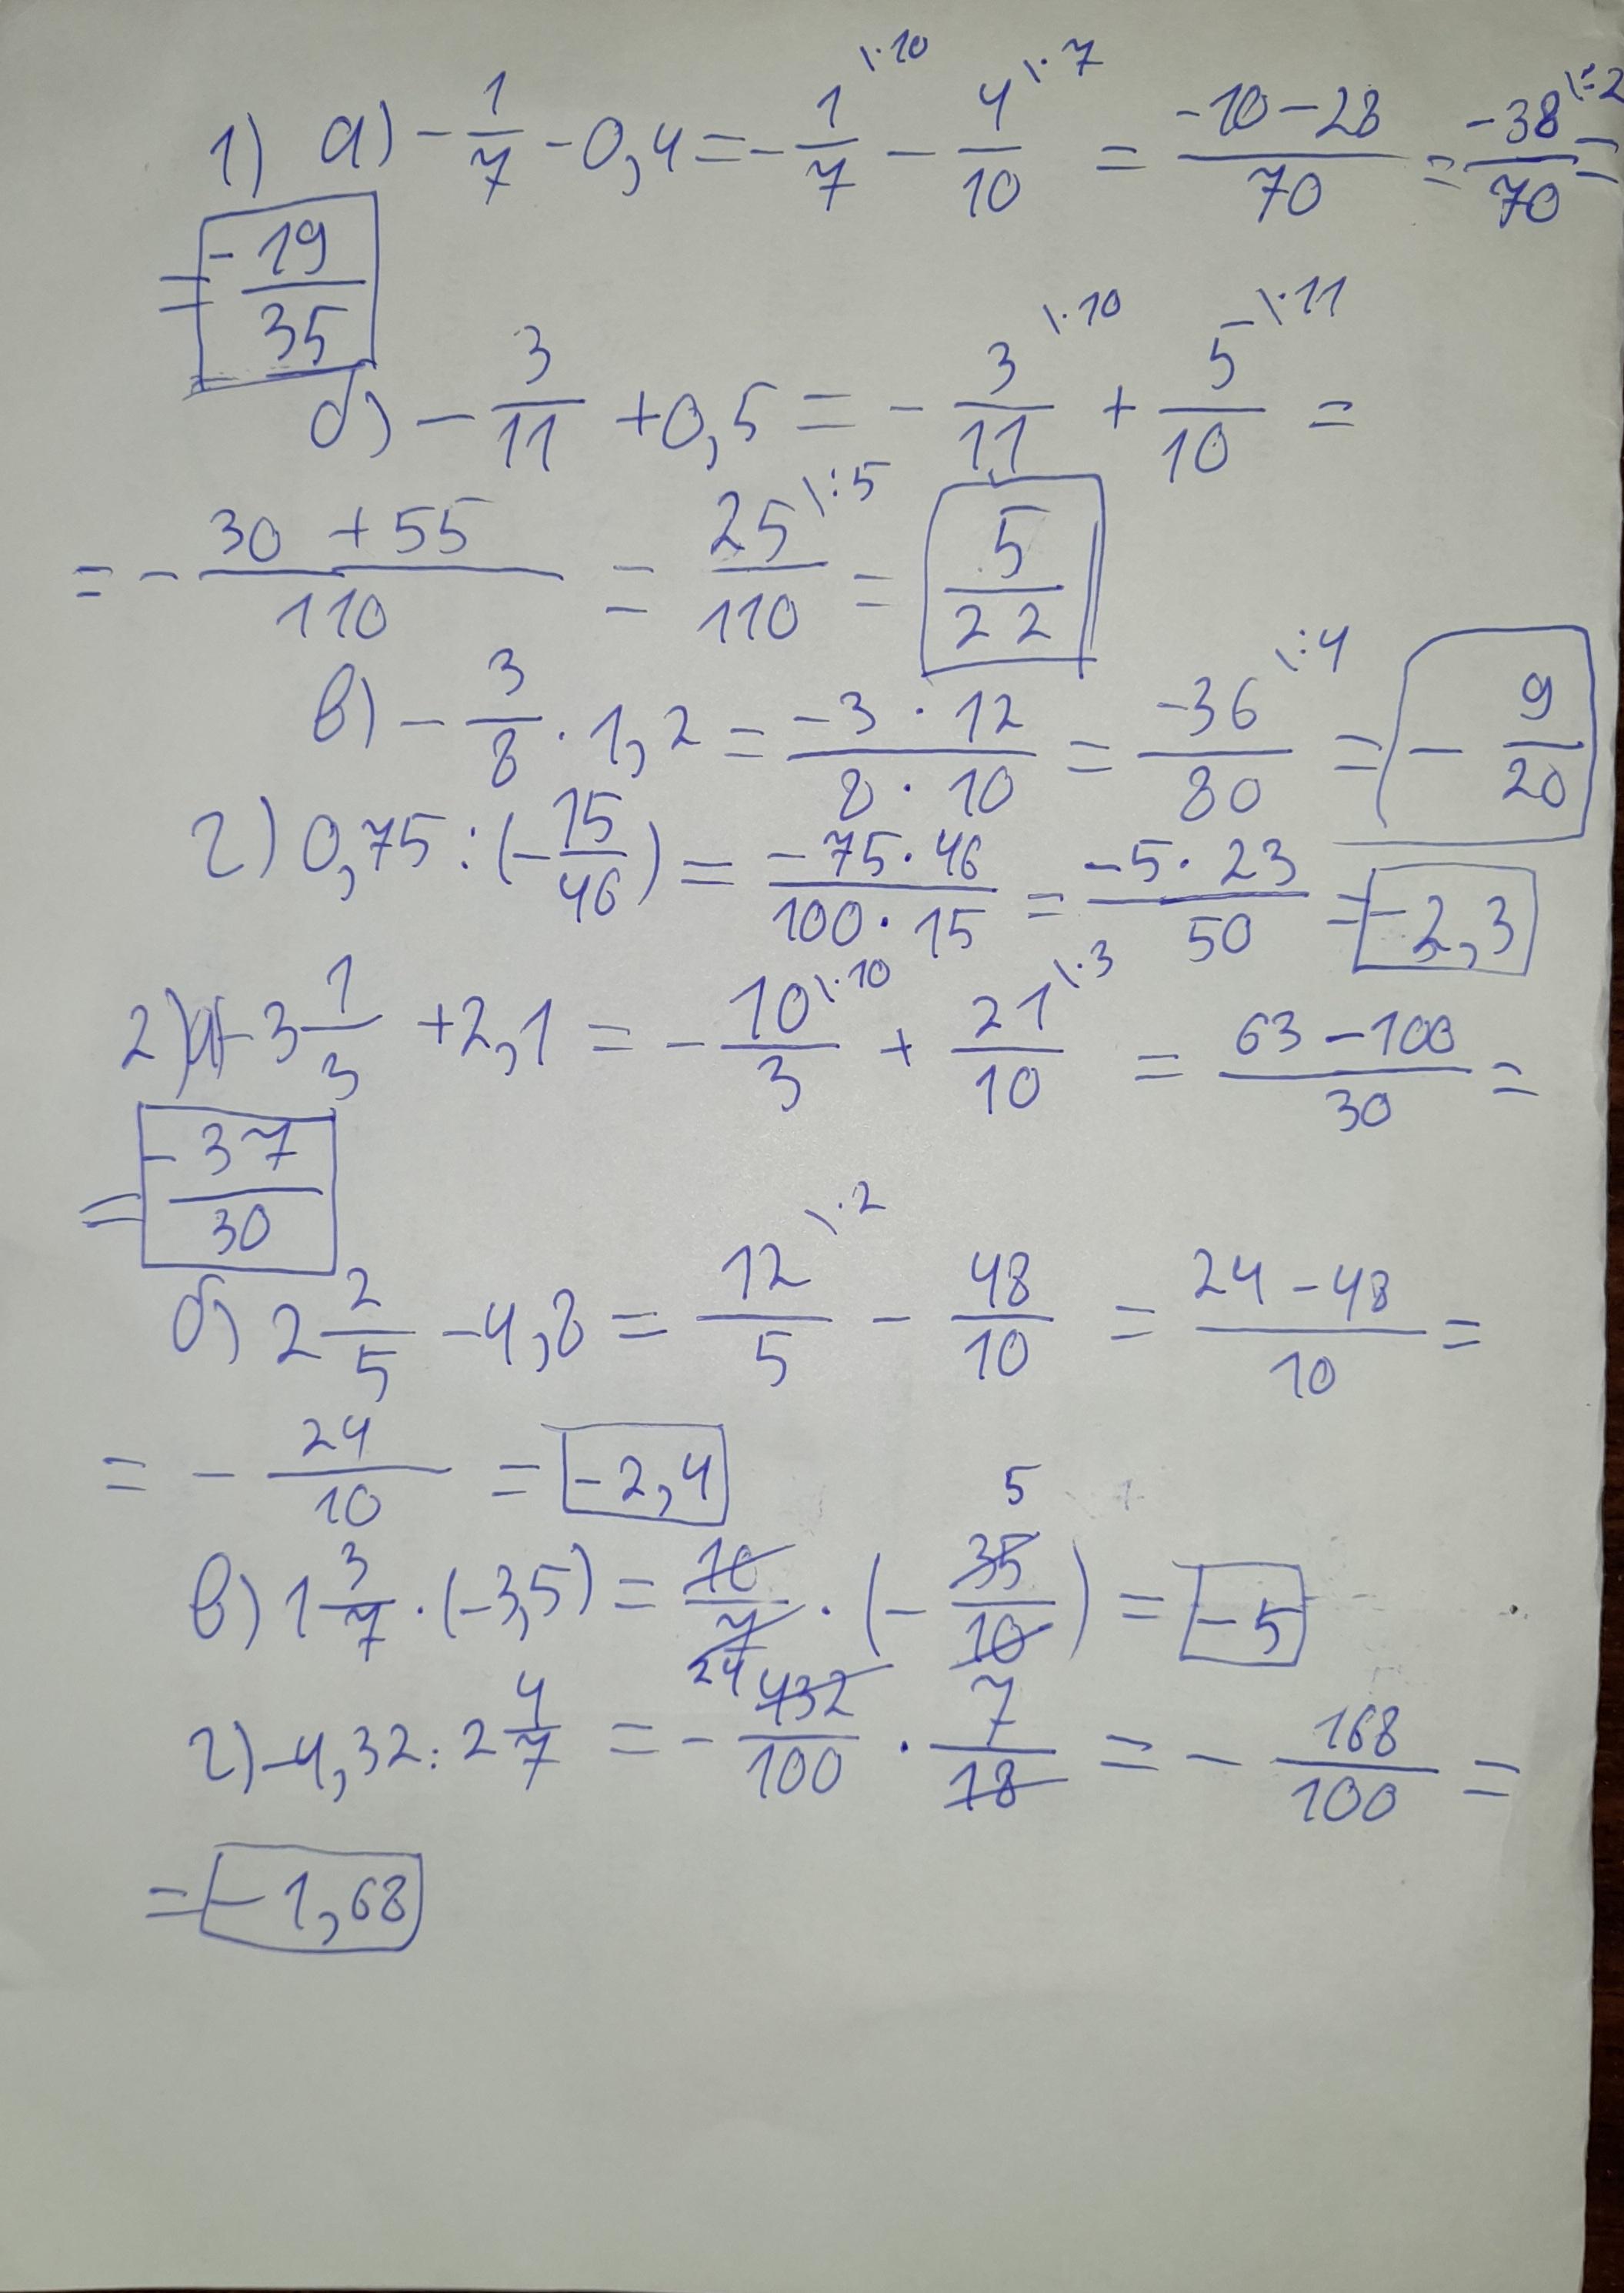 1) а) -1/7 - 0,4 = -1/7 \·10 - 4/10 \·7 = (-10-28)/70 = -38/70 \:2 =
= -19/35
б) -3/11 + 0,5 = -3/11 \·10 + 5/10 \·11 =
= -(30+55)/110 = 25/110 \:5 = 5/22
в) -3/8 · 1,2 = (-3·12)/(8·10) = -36/80 \:4 = -9/20
г) 0,75 : (-15/46) = (-75·46)/(100·15) = (-5·23)/50 = -2,3
2) а) -3 1/3 + 2,1 = -10/3 \·10 + 21/10 \·3 = (63-100)/30 =
= -37/30
б) 2 2/5 - 4,8 = 12/5 \·2 - 48/10 = (24-48)/10 =
= -24/10 = -2,4
в) 1 3/7 · (-3,5) = 10/7 · (-35/10) 5 = -5
г) -4,32 : 2 4/7 = -24 432/100 · 7/18 = -168/100 =
= -1,68